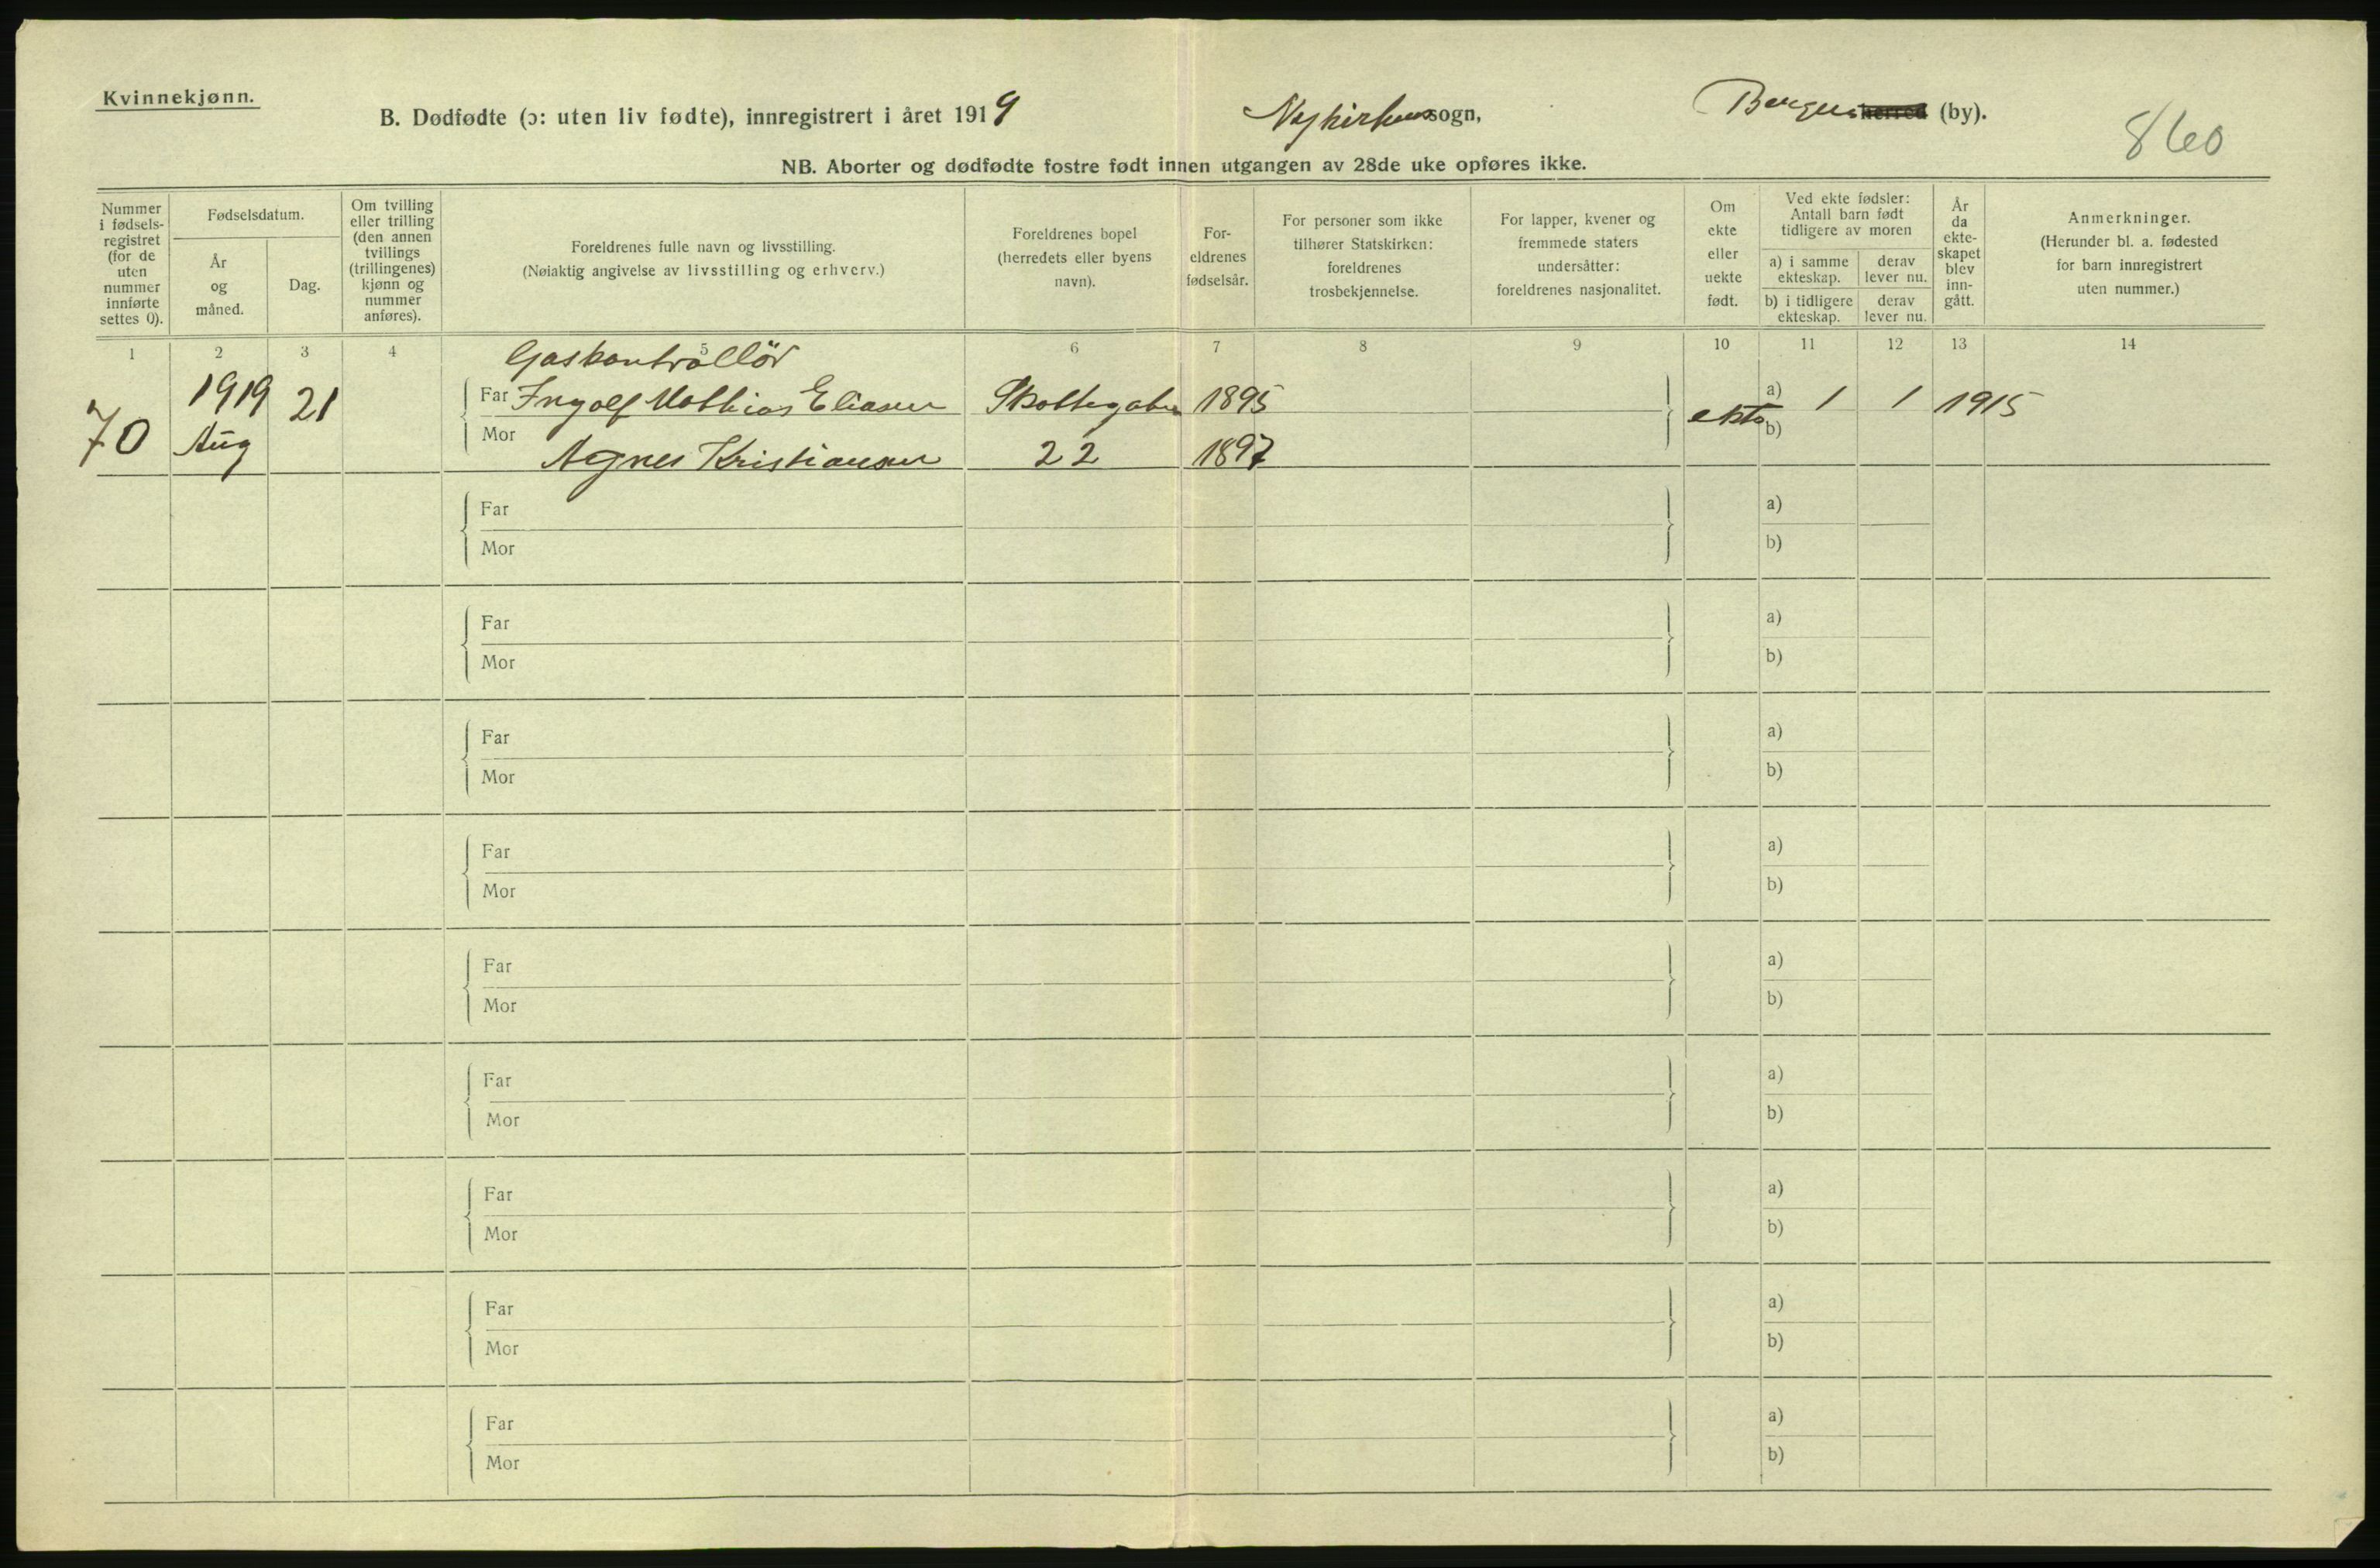 Kvinnekjønn.
B. Dødfødte (ɔ: uten liv fødte), innregistrert i året 1919 Nykirkens sogn, Bergens herred (by).
860
NB. Aborter og dødfødte fostre født innen utgangen av 28de uke opføres ikke.
Nummer i fødsels-registret (for de uten nummer innførte settes 0).
Fødselsdatum.
År og måned.
Dag.
Om tvilling eller trilling (den annen tvillings (trillingenes) kjønn og nummer anføres).
Foreldrenes fulle navn og livsstilling.
(Nøiaktig angivelse av livsstilling og erhverv.)
Foreldrenes bopel (herredets eller byens navn).
For-eldrenes fødselsår.
For personer som ikke tilhører Statskirken: foreldrenes trosbekjennelse.
For lapper, kvener og fremmede staters undersåtter: foreldrenes nasjonalitet.
Om ekte eller uekte født.
Ved ekte fødsler: Antall barn født tidligere av moren
a) i samme ekteskap.
derav lever nu.
b) i tidligere ekteskap.
derav lever nu.
År da ekte-skapet blev inn-gått.
Anmerkninger.
(Herunder bl. a. fødested for barn innregistrert uten nummer.)
1 2 3 4 5 6 7 8 9 10 11 12 13 14
Gaskontrollör
70 1919 Aug 21
Far Ingolf Mathias Eliasen Skottegaten 1895
Mor Agnes Kristiansen 22 1897
ekte a) 1 1 1915
b)
Far a)
Mor b)
Far a)
Mor b)
Far a)
Mor b)
Far a)
Mor b)
Far a)
Mor b)
Far a)
Mor b)
Far a)
Mor b)
Far a)
Mor b)
Far a)
Mor b)